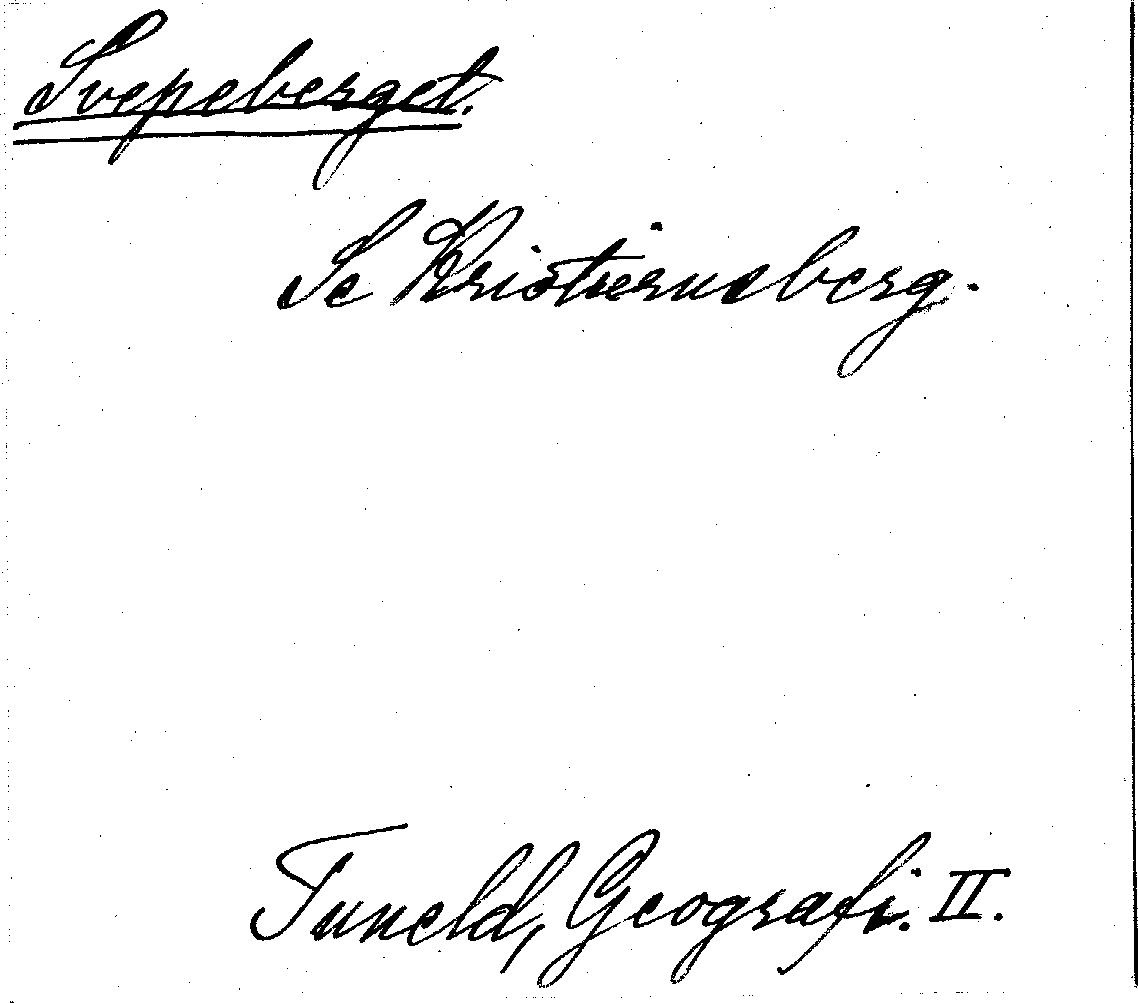 Svepeberget.
Se Kristiernsberg.
Tuneld, Geografi. II.